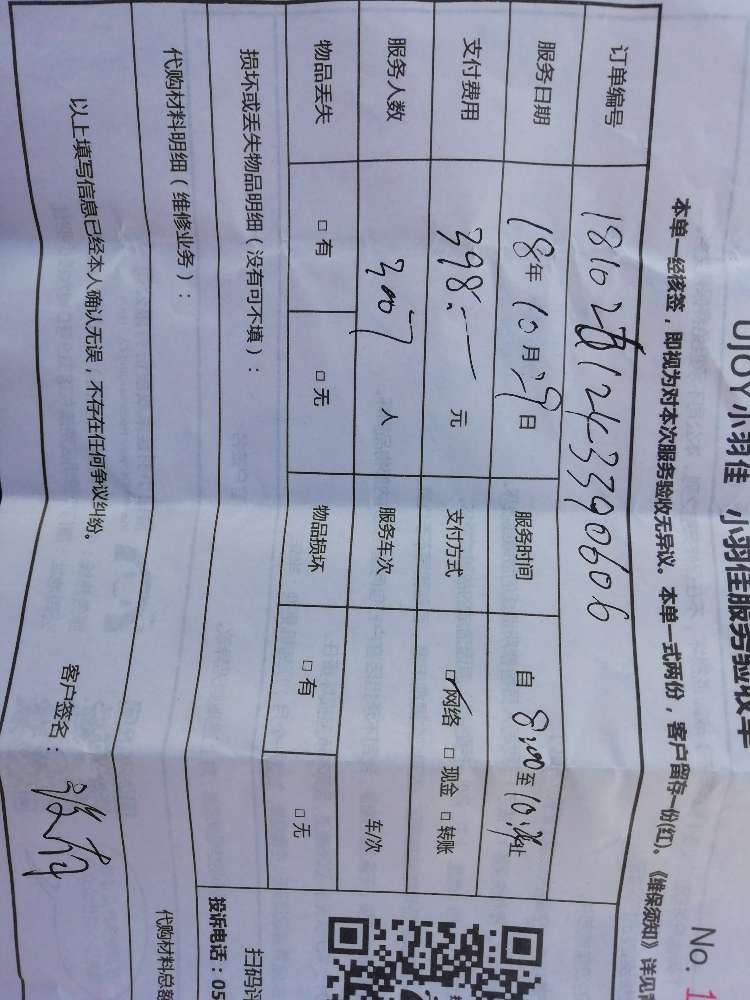 UJOY小羽佳 小羽佳服务验收单
No. 1
本单一经核签，即视为对本次服务验收无异议。本单一式两份，客户留存一份(红)。《维保须知》详见
订单编号
服务日期 18年 10月 29日 服务时间 自 8:00 至 止
支付费用 398.— 元 支付方式 ☑网络 □现金 □转账
服务人数 人 服务车次 车/次
物品丢失 □有 □无 物品损坏 □有 □无
损坏或丢失物品明细（没有可不填）：
代购材料明细（维修业务）：
代购材料总额
以上填写信息已经本人确认无误，不存在任何争议纠纷。
客户签名：
扫码评
投诉电话：05